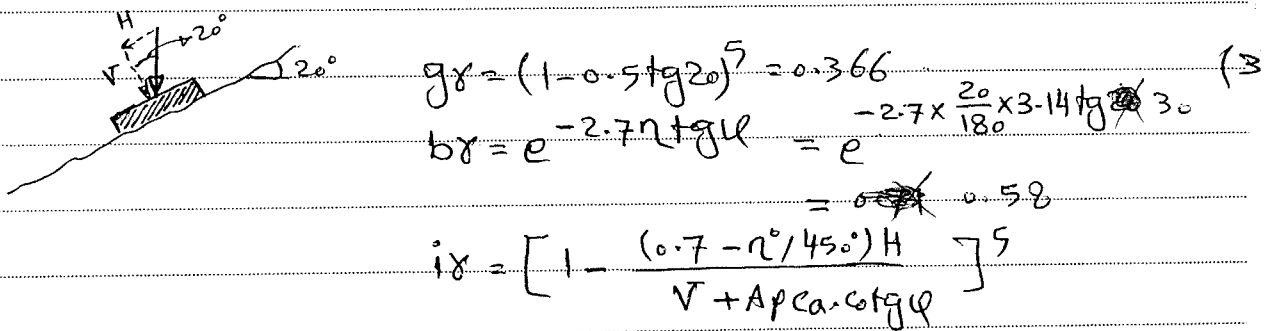 H
20°
V
20°
gγ = (1-0.5tg20)^5 = 0.366 (3
bγ = e^(-2.7ηtgφ) = e^(-2.7×20/180×3.14tg30)
= 0.58
iγ = [1 - (0.7-η°/450°)H / (V+Apca.cotgφ)]^5